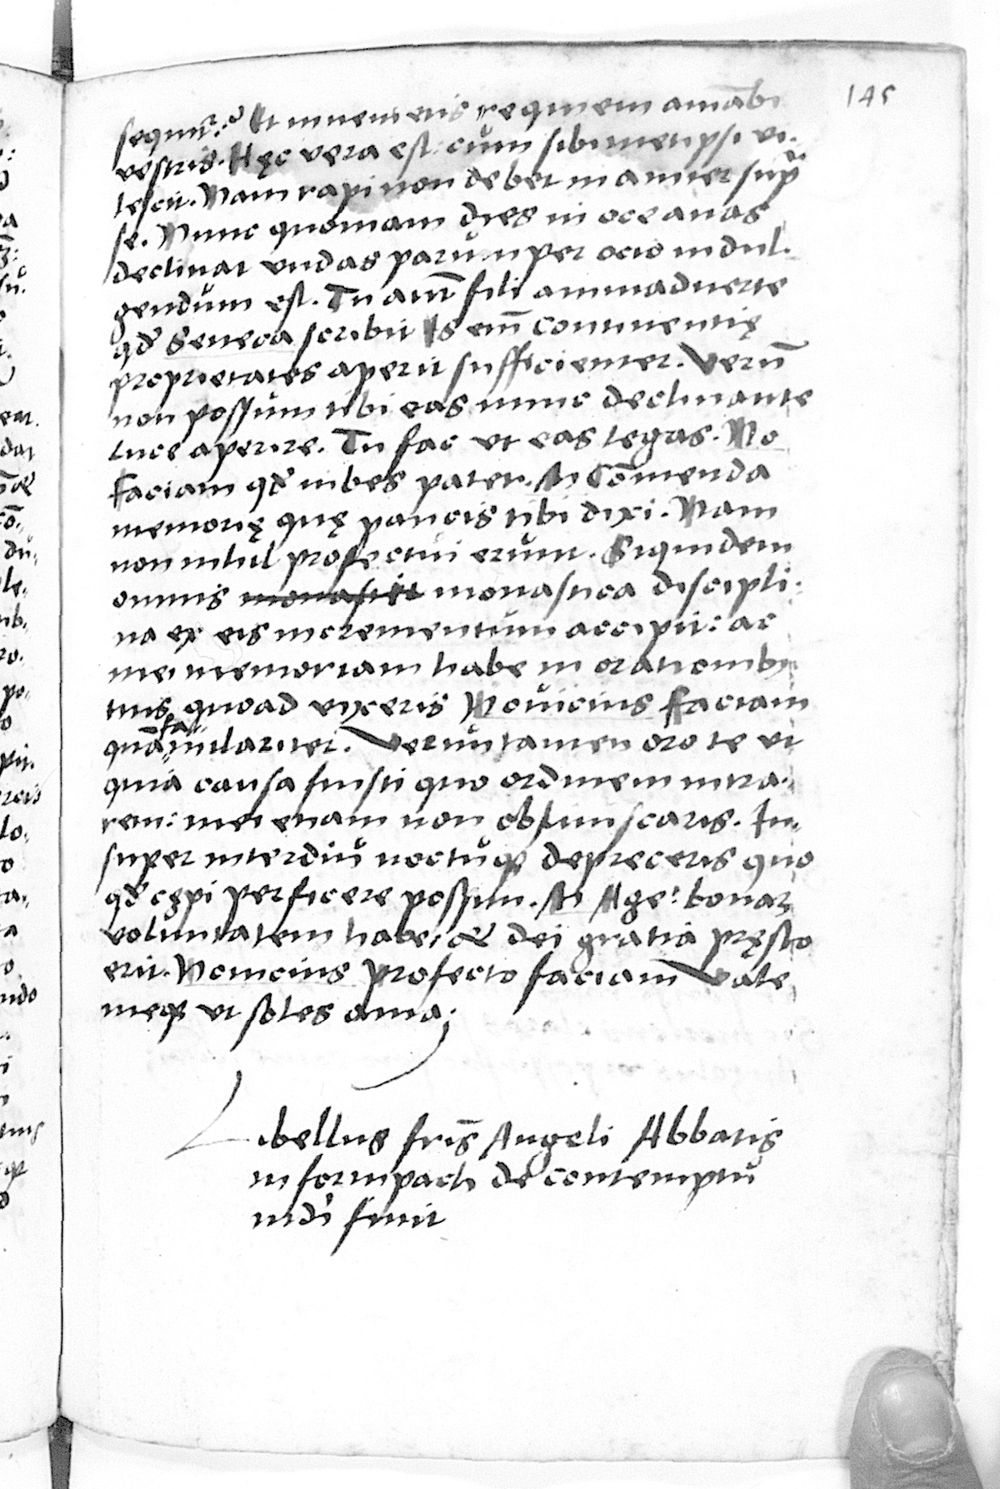 145
sequit̃? Et inuenietis requiem aĩabꝫ
vestris. Hęc vera est: cum sibimetipsi vi-
lescit. Nam rapi non debet inaniter sup̃
se. Nunc quoniam dies in oceanas
declinat vndas parumper ocio indul-
gendum est. Tu aũt fili animaduerte
qđ Seneca scribit Is eñ continentię
proprietates aperit sufficienter. Verũ
non possum tibi eas nunc declinante
luce aperire. Tu fac vt eas legas. No
Faciam qđ iubes pater. An Cõmenda
memorię quę paucis tibi dixi. Nam
non nihil profectui erunt. Siquidem
omnis monastica discipli-
na ex eis incrementum accipit: ac
mei memoriam habe in orationibꝫ
tuis quoad vixeris Nouicius Faciam
quã familiariter. Veruntamen oro te vt
quia causa fuisti quo ordinem intra-
rem: mei etiam non obliuiscaris. In-
super interdiũ noctuqꝫ depreceris quo
qđ cępi perficere possim. An Age: bonaꝫ
voluntatem habe, & dei gratia pręsto
erit. Nouicius Profecto faciam Vale
meqꝫ vt soles ama;
Libellus fris̃ Angeli Abbatis
in formpach de contemptu
mdi finit